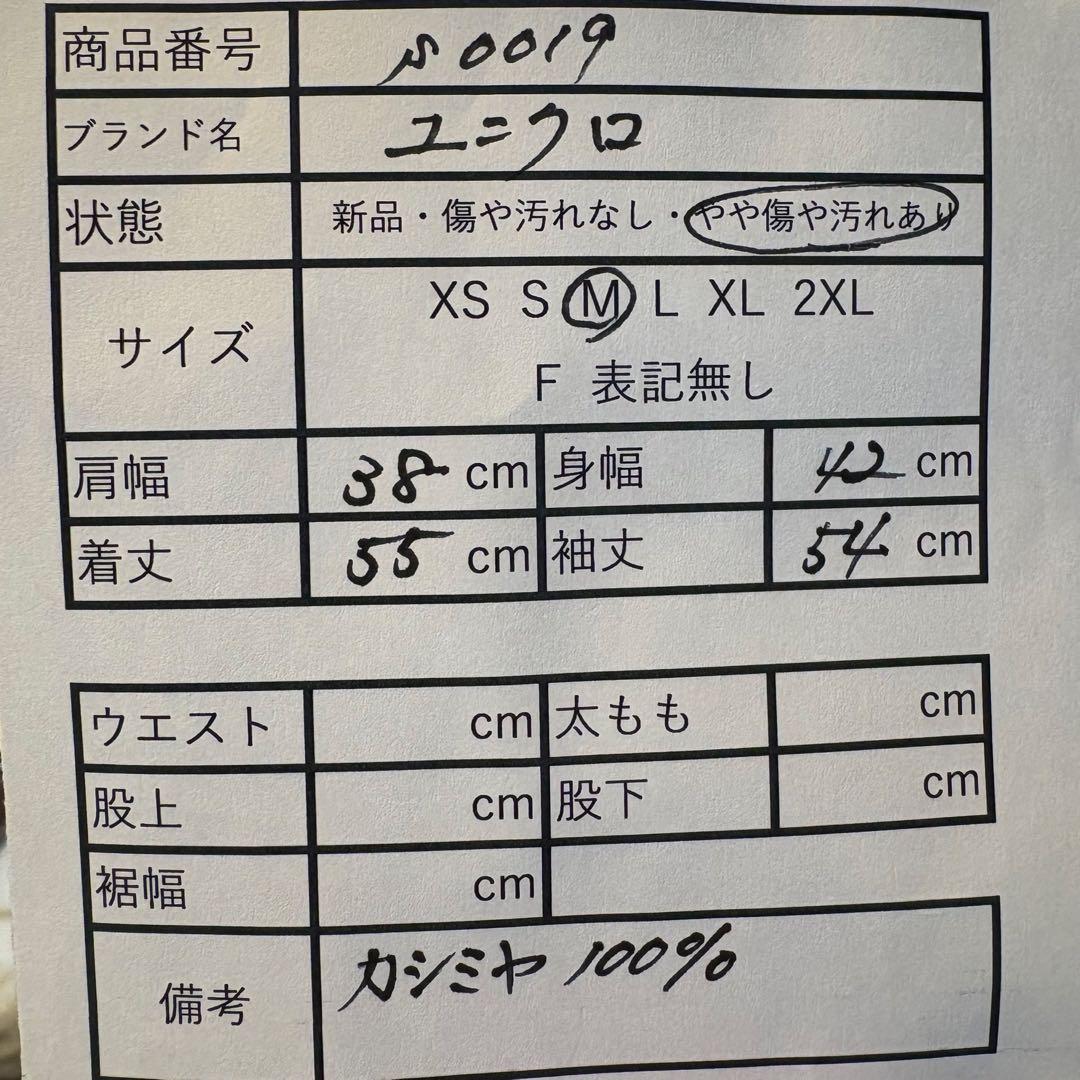 商品番号 s0019
ブランド名 ユニクロ
状態 新品・傷や汚れなし・やや傷や汚れあり
サイズ XS S M L XL 2XL
F 表記無し
肩幅 38 cm 身幅 42 cm
着丈 55 cm 袖丈 54 cm
ウエスト cm 太もも cm
股上 cm 股下 cm
裾幅 cm
備考 カシミヤ 100%